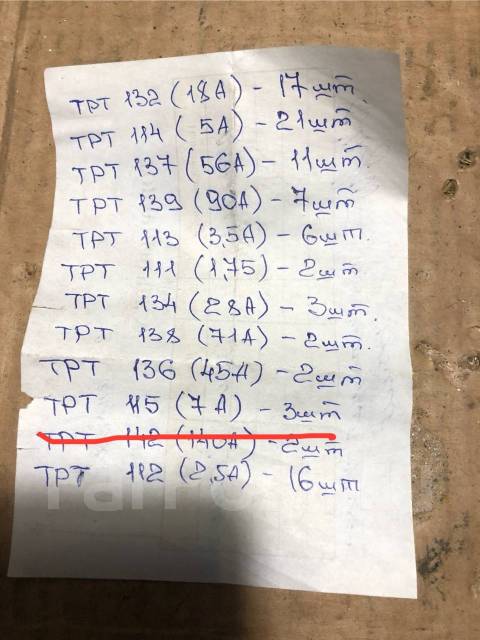 ТРТ 132 (18А) - 17шт.
ТРТ 114 (5А) - 21шт.
ТРТ 137 (56А) - 11шт.
ТРТ 139 (90А) - 7шт
ТРТ 113 (3,5А) - 6шт.
ТРТ 111 (1,75) - 2шт
ТРТ 134 (28А) - 3шт.
ТРТ 138 (71А) - 2шт.
ТРТ 136 (45А) - 2шт
ТРТ 115 (7А) - 3шт
ТРТ 142 (140А) - 2шт
ТРТ 112 (2,5А) - 16шт